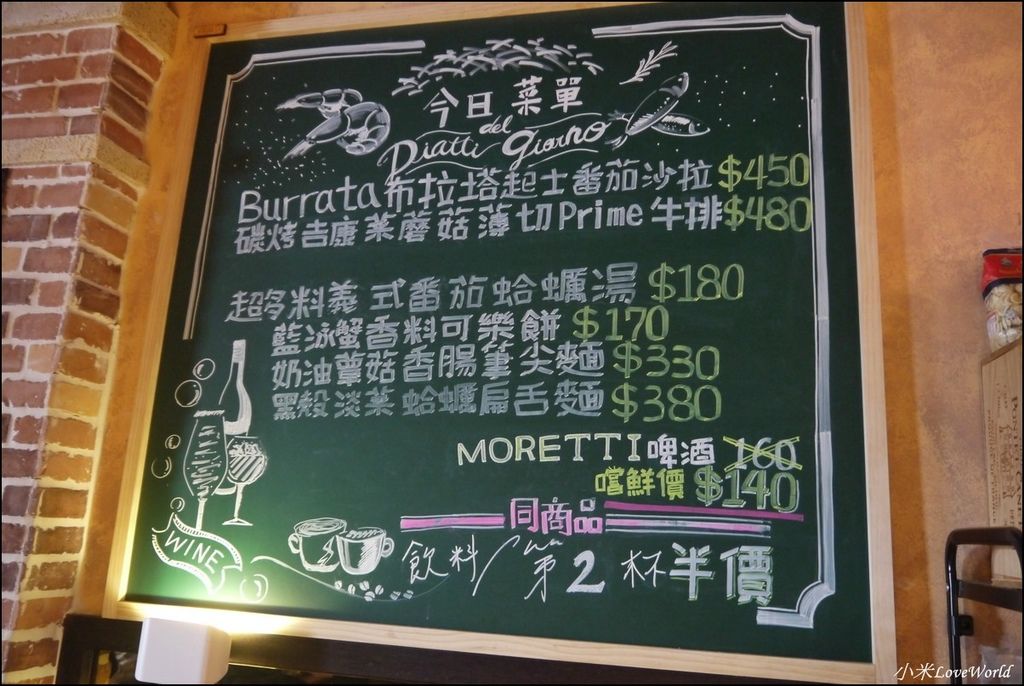 今日菜單
Piatti del Giorno
Burrata布拉塔起士番茄沙拉 $450
碳烤吉康菜蘑菇薄切Prime牛排 $480
超多料義式番茄蛤蠣湯 $180
藍泳蟹香料可樂餅 $170
奶油蕈菇香腸筆尖麵 $330
黑殼淡菜蛤蠣扁舌麵 $380
MORETTI啤酒 160
嚐鮮價 $140
同商品
飲料/第2杯半價
WINE
小米LoveWorld